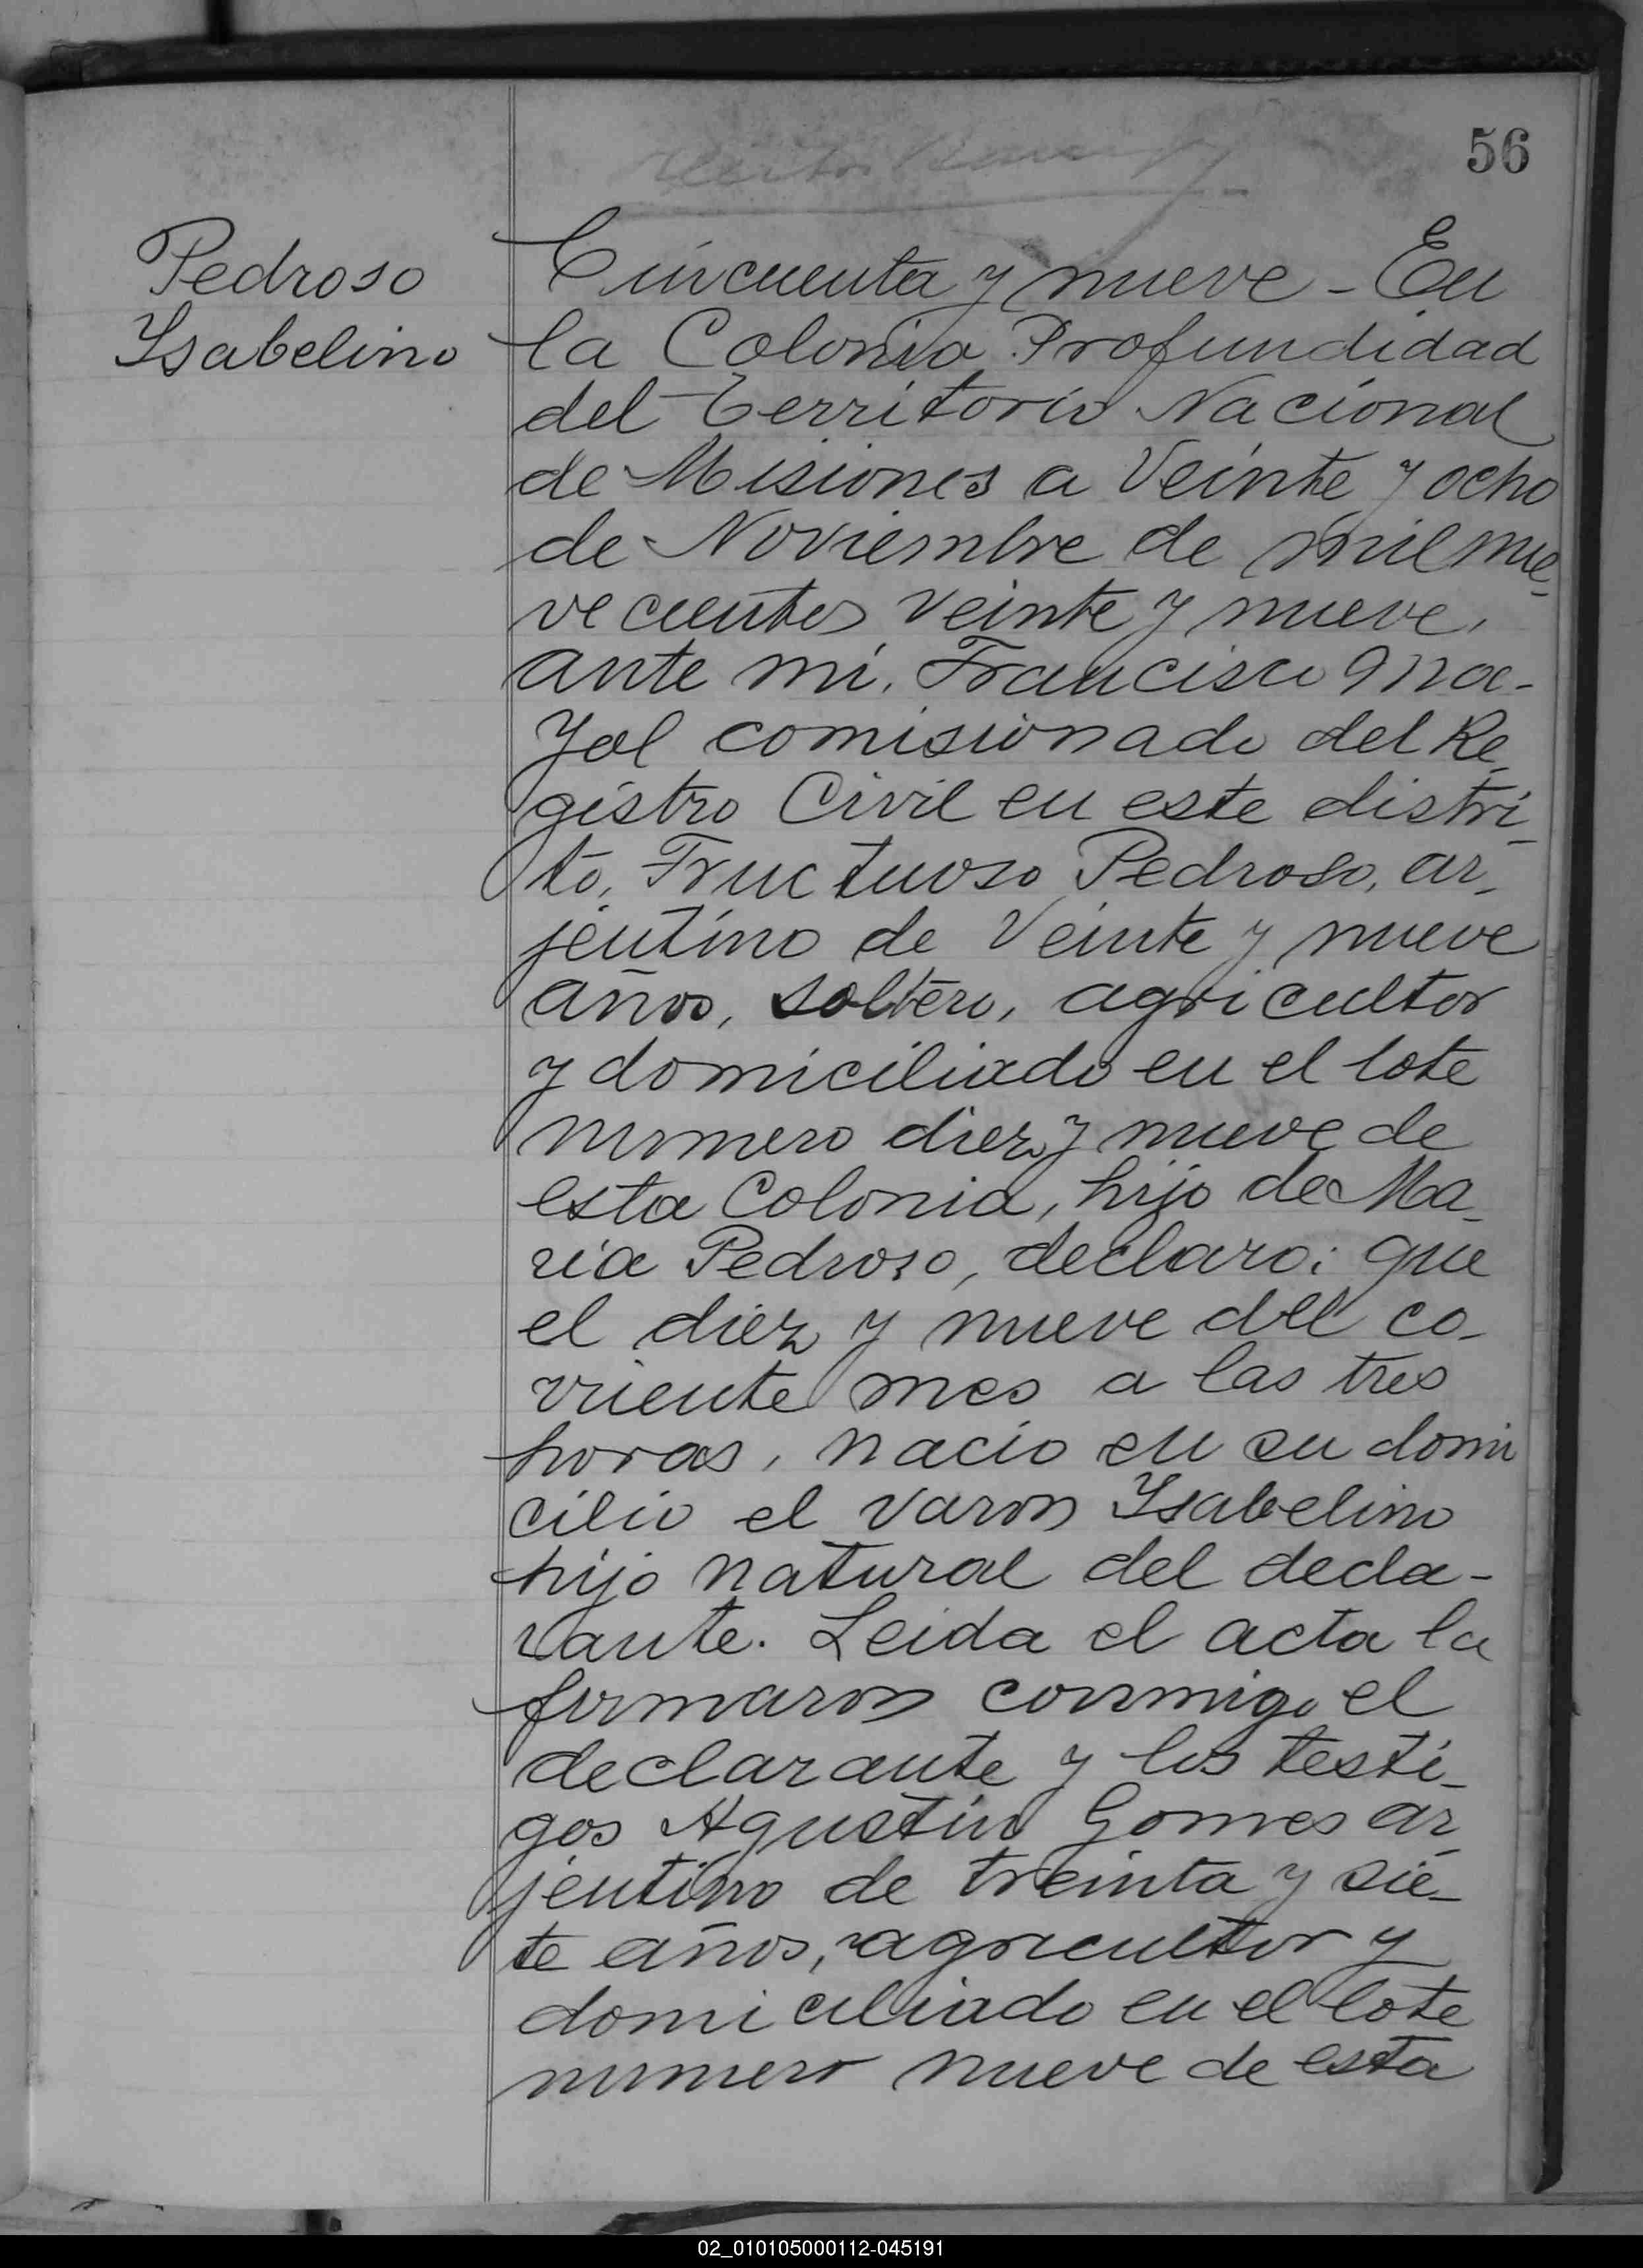 56
Pedroso
Ysabelino
Cincuenta y nueve - En
la Colonia Profundidad
del Territorio Nacional
de Misiones a Veinte y ocho
de Noviembre de mil nue-
vecientos veinte y nueve,
ante mi, Francisco Ma-
yol comisionado del Re-
gistro Civil en este distri-
to, Fructuoso Pedroso, ar-
jentino de Veinte y nueve
años, soltero, agricultor
y domiciliado en el lote
numero diez y nueve de
esta Colonia, hijo de Ma-
ria Pedroso, declaro: que
el diez y nueve del co-
rriente mes a las tres
horas, nacio en su domi
cilio el varon Ysabelino
hijo natural del decla-
rante. Leida el acta la
firmaron conmigo el
declarante y los testi-
gos Agustin Gomes ar-
jentino de treinta y sie-
te años, agricultor y
domiciliado en el lote
numero nueve de esta
02_010105000112-045191